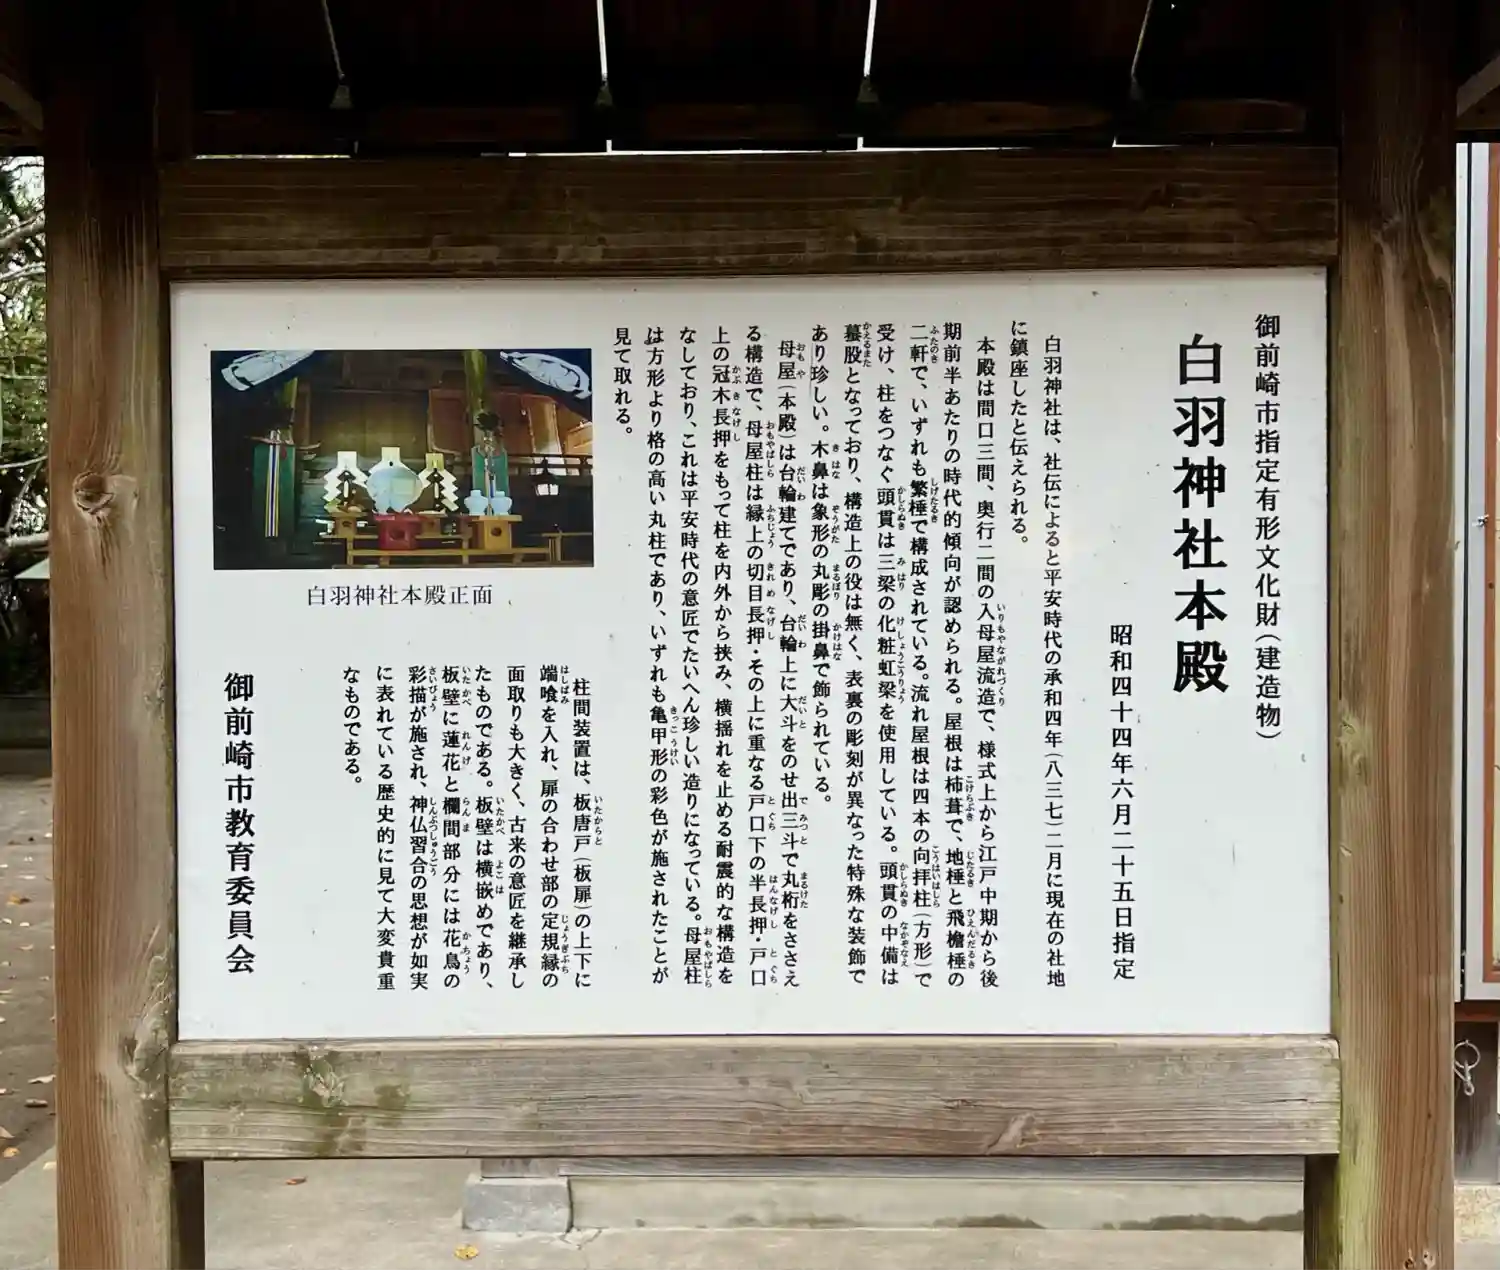 御前崎市指定有形文化財(建造物)
白羽神社本殿
昭和四十四年六月二十五日指定
白羽神社は、社伝によると平安時代の承和四年(八三七)二月に現在の社地
に鎮座したと伝えられる。
本殿は間口三間、奥行二間の入母屋流造で、様式上から江戸中期から後
期前半あたりの時代的傾向が認められる。屋根は柿葺で、地棰と飛檐棰の
二軒で、いずれも繁棰で構成されている。流れ屋根は四本の向拝柱(方形)で
受け、柱をつなぐ頭貫は三梁の化粧虹梁を使用している。頭貫の中備は
蟇股となっており、構造上の役は無く、表裏の彫刻が異なった特殊な装飾で
あり珍しい。木鼻は象形の丸彫の掛鼻で飾られている。
母屋(本殿)は台輪建てであり、台輪上に大斗をのせ出三斗で丸桁をささえ
る構造で、母屋柱は縁上の切目長押・その上に重なる戸口下の半長押・戸口
上の冠木長押をもって柱を内外から挟み、横揺れを止める耐震的な構造を
なしており、これは平安時代の意匠でたいへん珍しい造りになっている。母屋柱
は方形より格の高い丸柱であり、いずれも亀甲形の彩色が施されたことが
見て取れる。
柱間装置は、板唐戸(板扉)の上下に
端喰を入れ、扉の合わせ部の定規縁の
面取りも大きく、古来の意匠を継承し
たものである。板壁は横嵌めであり、
板壁に蓮花と欄間部分には花鳥の
彩描が施され、神仏習合の思想が如実
に表れている歴史的に見て大変貴重
なものである。
白羽神社本殿正面
御前崎市教育委員会